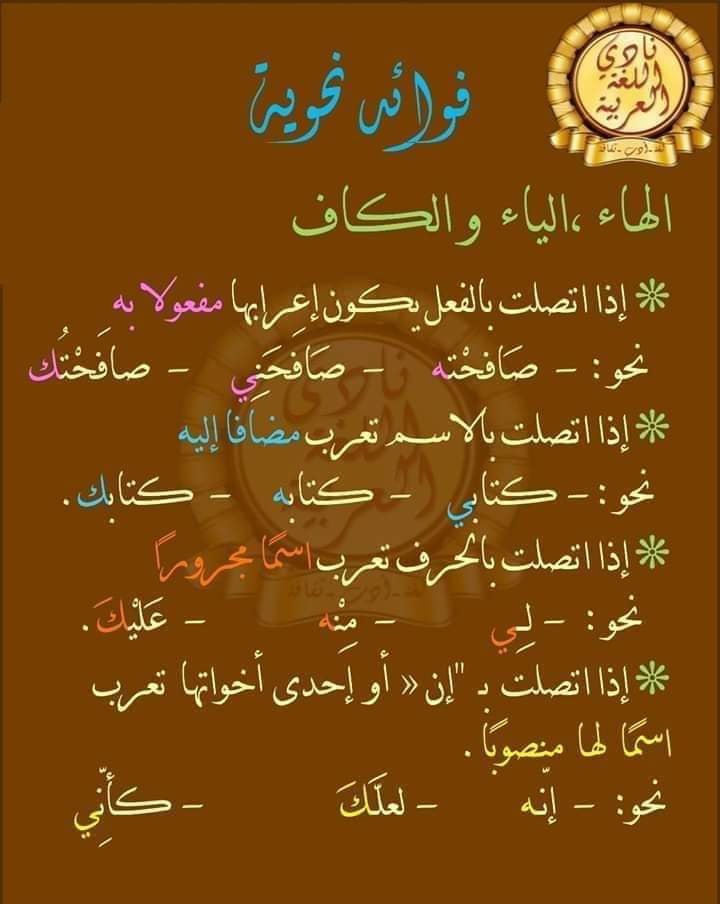 نادي
اللغة
العربية
لغة - أدب - ثقافة
فوائد نحوية
الهاء ،الياء والكاف
إذا اتصلت بالفعل يكون إعرابها مفعولا به
نحو: - صَافحْته - صَافَحَنِي - صافَحْتُك
إذا اتصلت بالاسم تعرب مضافا إليه
نحو: - كتابي - كتابه - كتابك .
إذا اتصلت بالحرف تعرب اسمًا مجرورًا
نحو: - لِي - مِنْه - عَلَيْكَ .
إذا اتصلت بـ "إن« أو إحدى أخواتها تعرب
اسمًا لها منصوبًا .
نحو: - إنّه - لعلَّكَ - كأنِّي